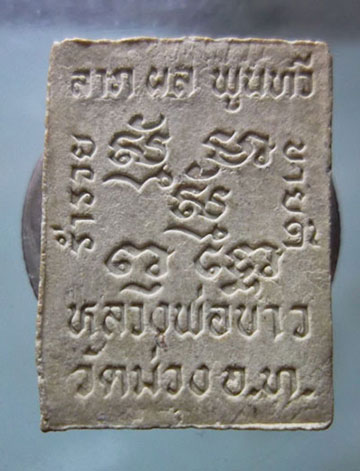 ลาภ ผล พูนทวี
ร่ำรวย
ขายดี
หลวงพ่อขาว
วัดม่วง อ.ท.